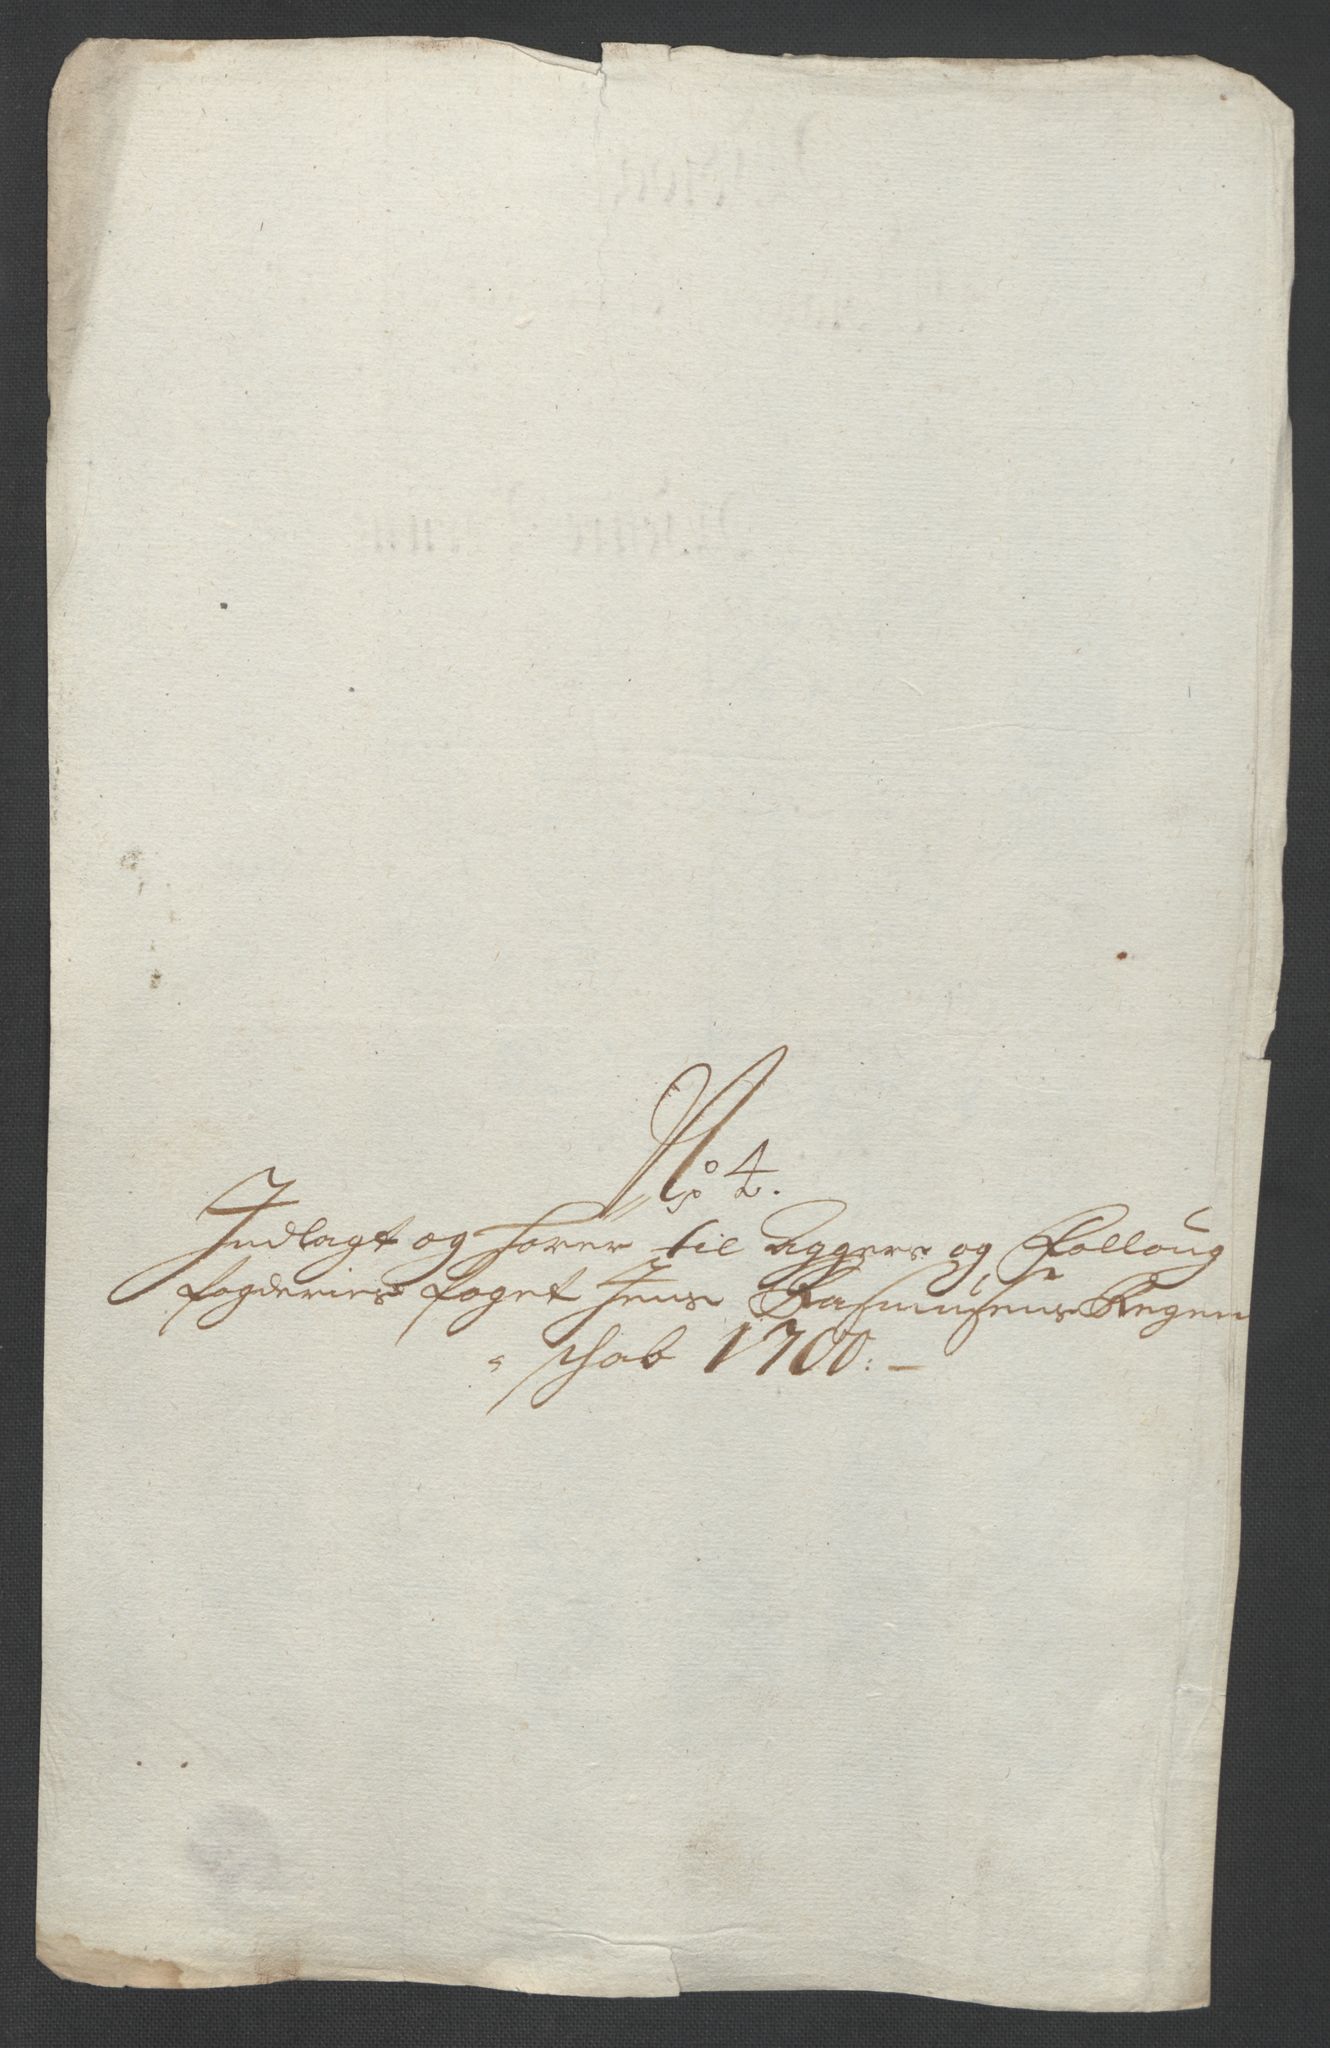 No 4.
Indlagt og hører til Aggers og Folloug
fogderies foget Jens Rasmusens Regen
schab 1700:-